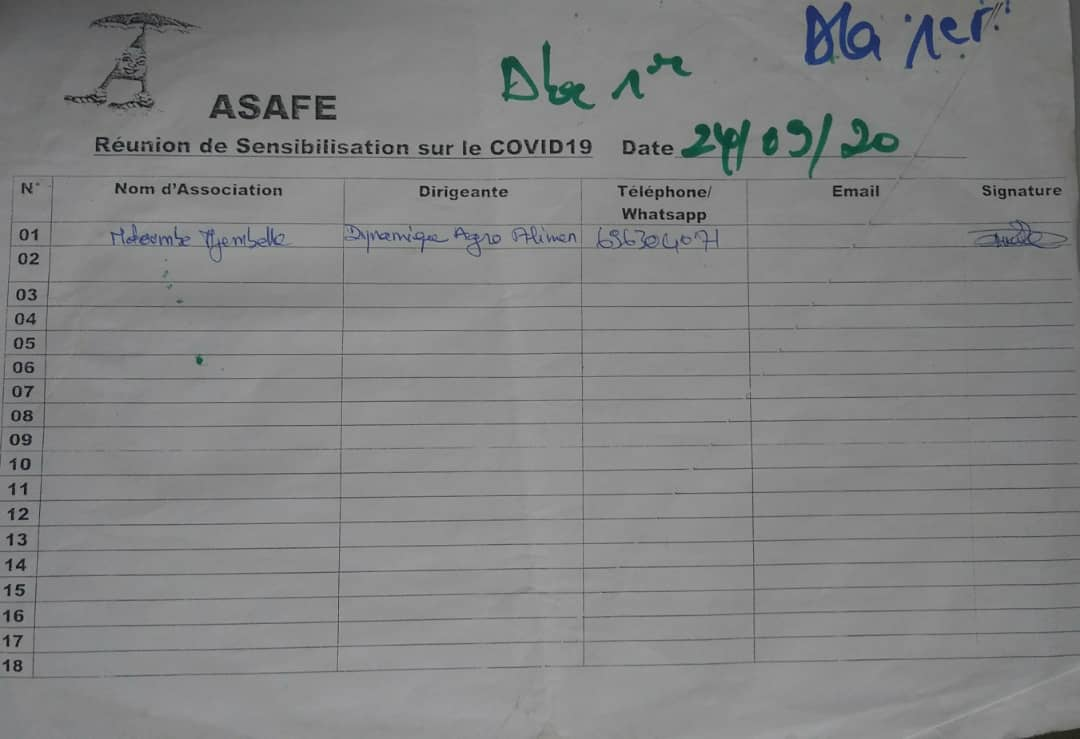 Dla 1er
Dla 1er
ASAFE
Réunion de Sensibilisation sur le COVID19 Date 24/09/20
N° Nom d'Association Dirigeante Téléphone/ Whatsapp Email Signature
01 Dynamique Agro Alimen 696304071
02
03
04
05
06
07
08
09
10
11
12
13
14
15
16
17
18